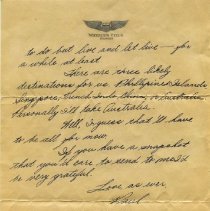 to do but live and let live — for
a while at least.
There are three likely
destinations for us. Phillipines Islands
Singapore, French Indo China, or Australia.
Personally I'll take Australia.
Well, I guess that'll have
to be all for now.
If you have a snapshot
that you'd care to send to me I'd
be very grateful.
Love as ever
Paul